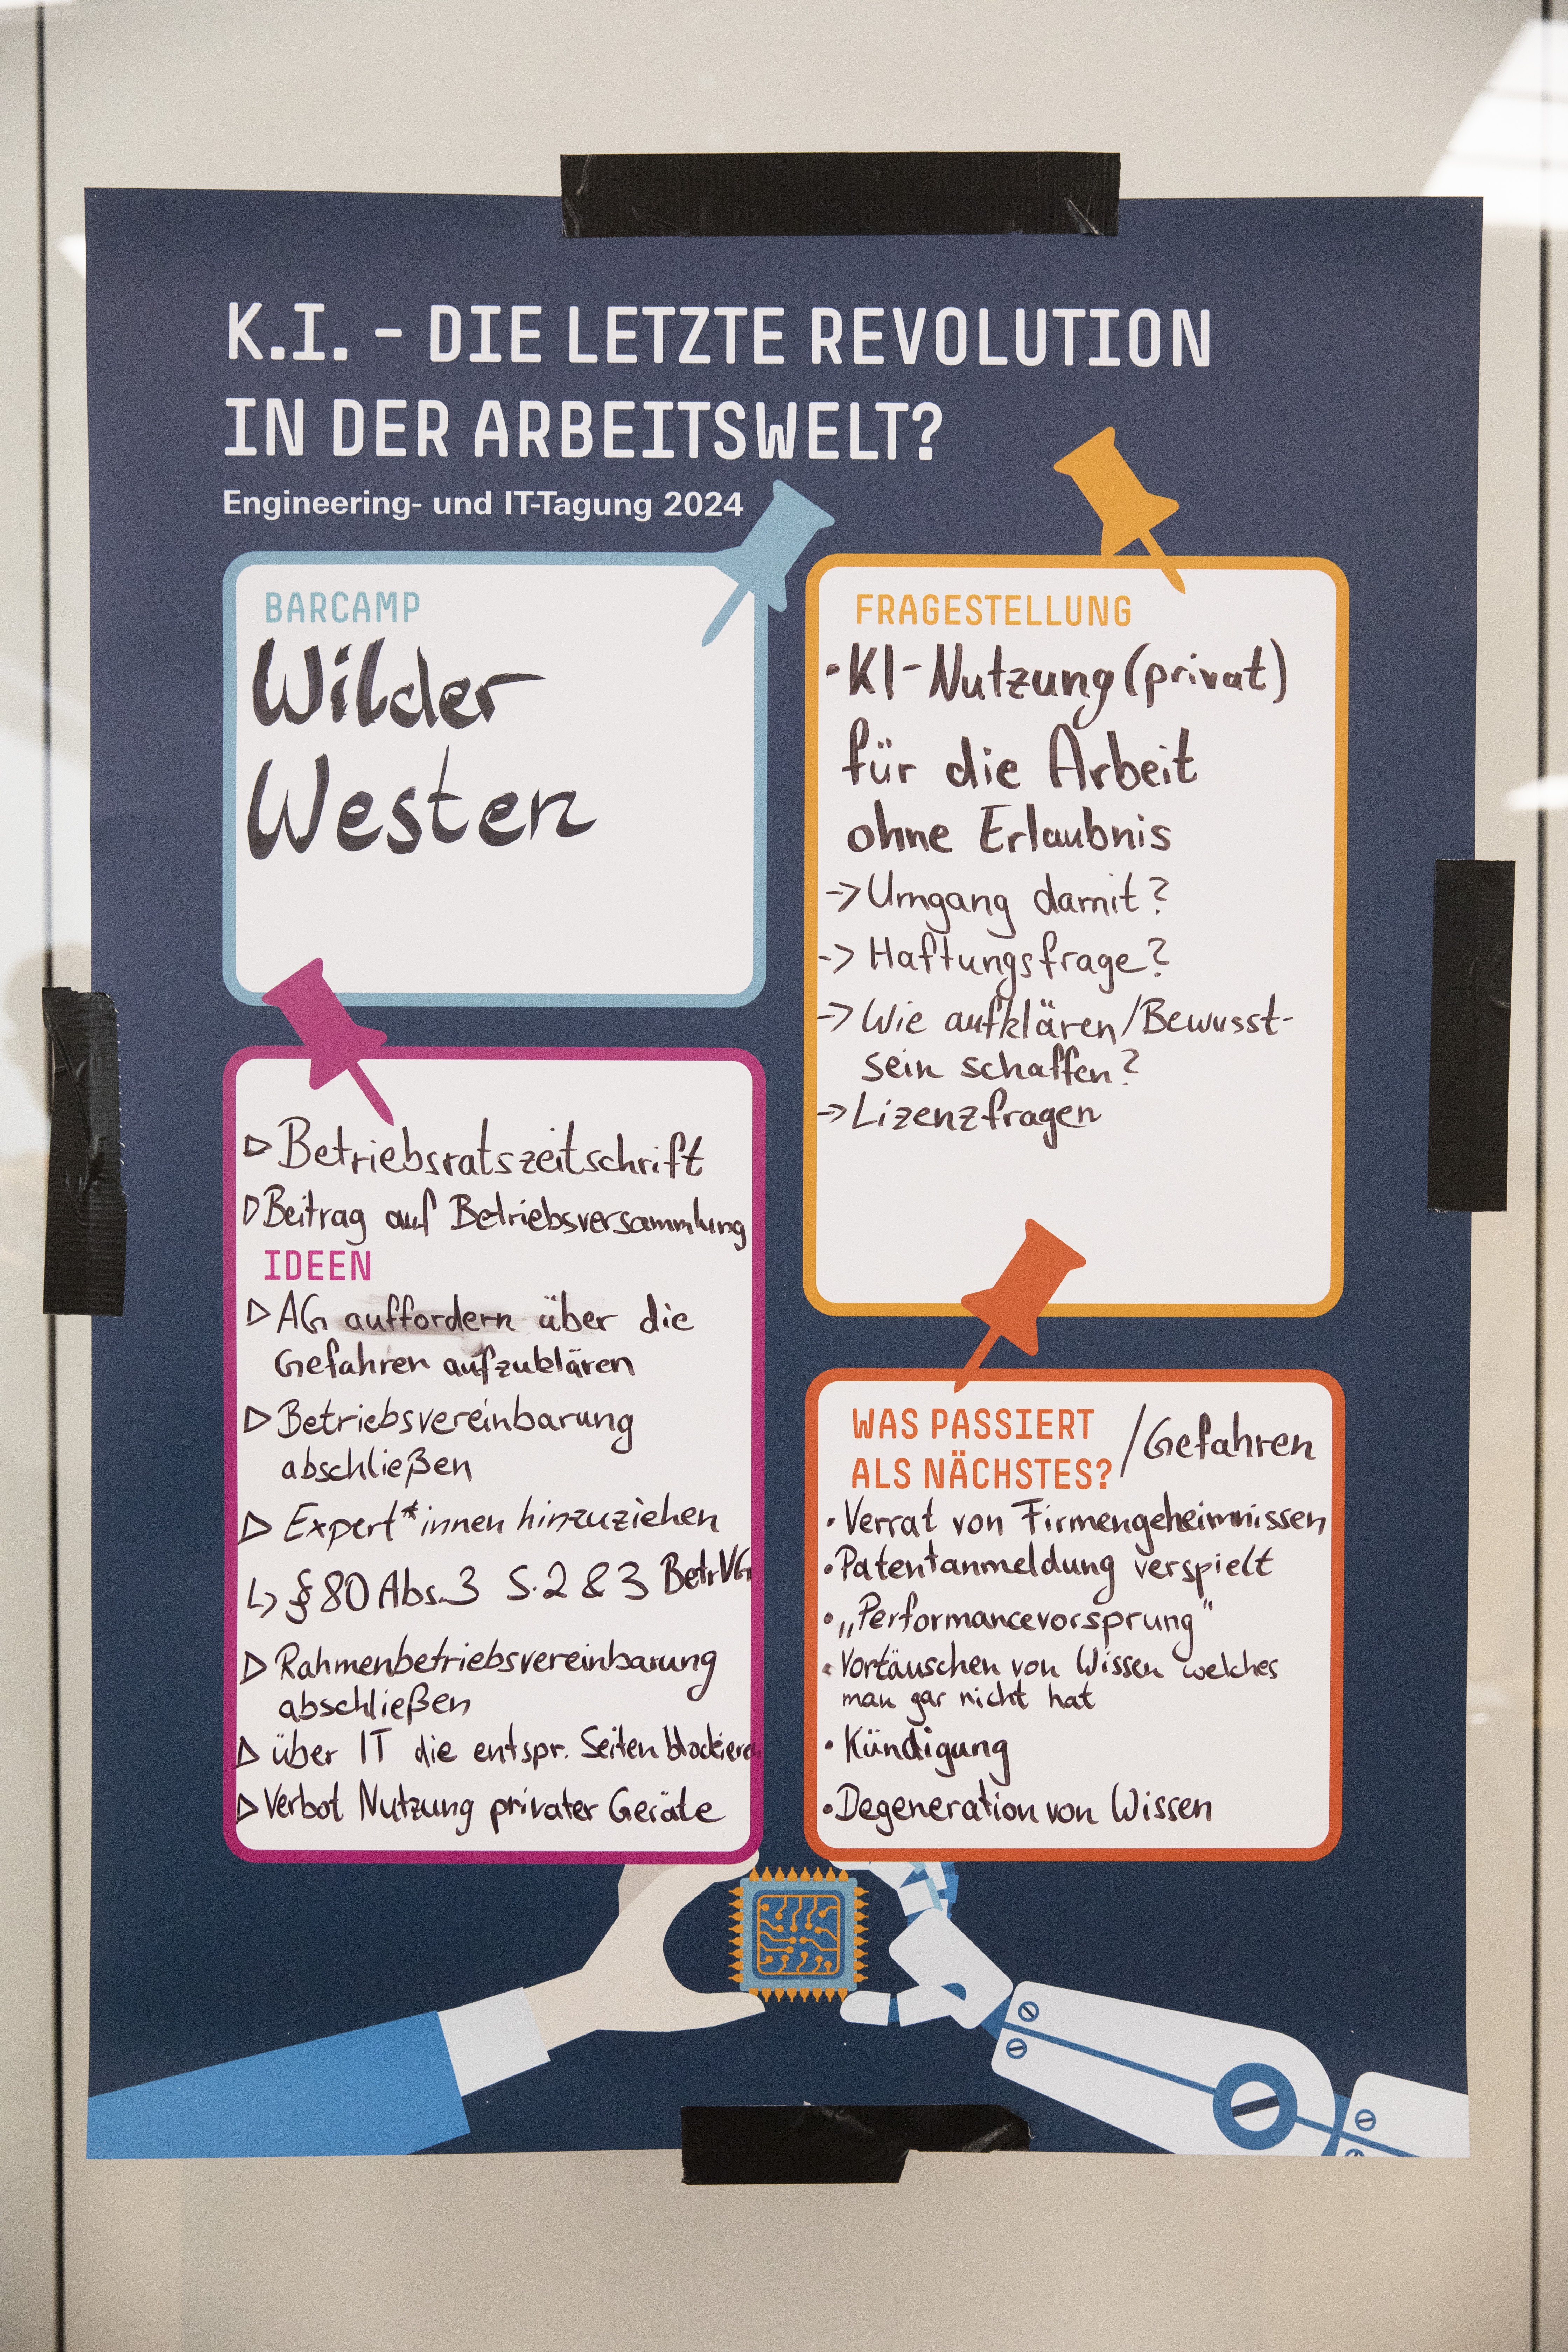 K.I. - DIE LETZTE REVOLUTION
IN DER ARBEITSWELT?
Engineering- und IT-Tagung 2024
BARCAMP
Wilder
Westen
FRAGESTELLUNG
• KI-Nutzung (privat)
für die Arbeit
ohne Erlaubnis
-> Umgang damit?
-> Haftungsfrage?
-> Wie aufklären/Bewusst-
sein schaffen?
-> Lizenzfragen
▷ Betriebsratszeitschrift
▷ Beitrag auf Betriebsversammlung
IDEEN
▷ AG auffordern über die
Gefahren aufzuklären
▷ Betriebsvereinbarung
abschließen
▷ Expert*innen hinzuziehen
↳ § 80 Abs. 3 S. 2 & 3 BetrVG
▷ Rahmenbetriebsvereinbarung
abschließen
▷ über IT die entspr. Seiten blockieren
▷ Verbot Nutzung privater Geräte
WAS PASSIERT
ALS NÄCHSTES? /Gefahren
• Verrat von Firmengeheimnissen
• Patentanmeldung verspielt
• „Performancevorsprung"
• Vortäuschen von Wissen welches
man gar nicht hat
• Kündigung
• Degeneration von Wissen